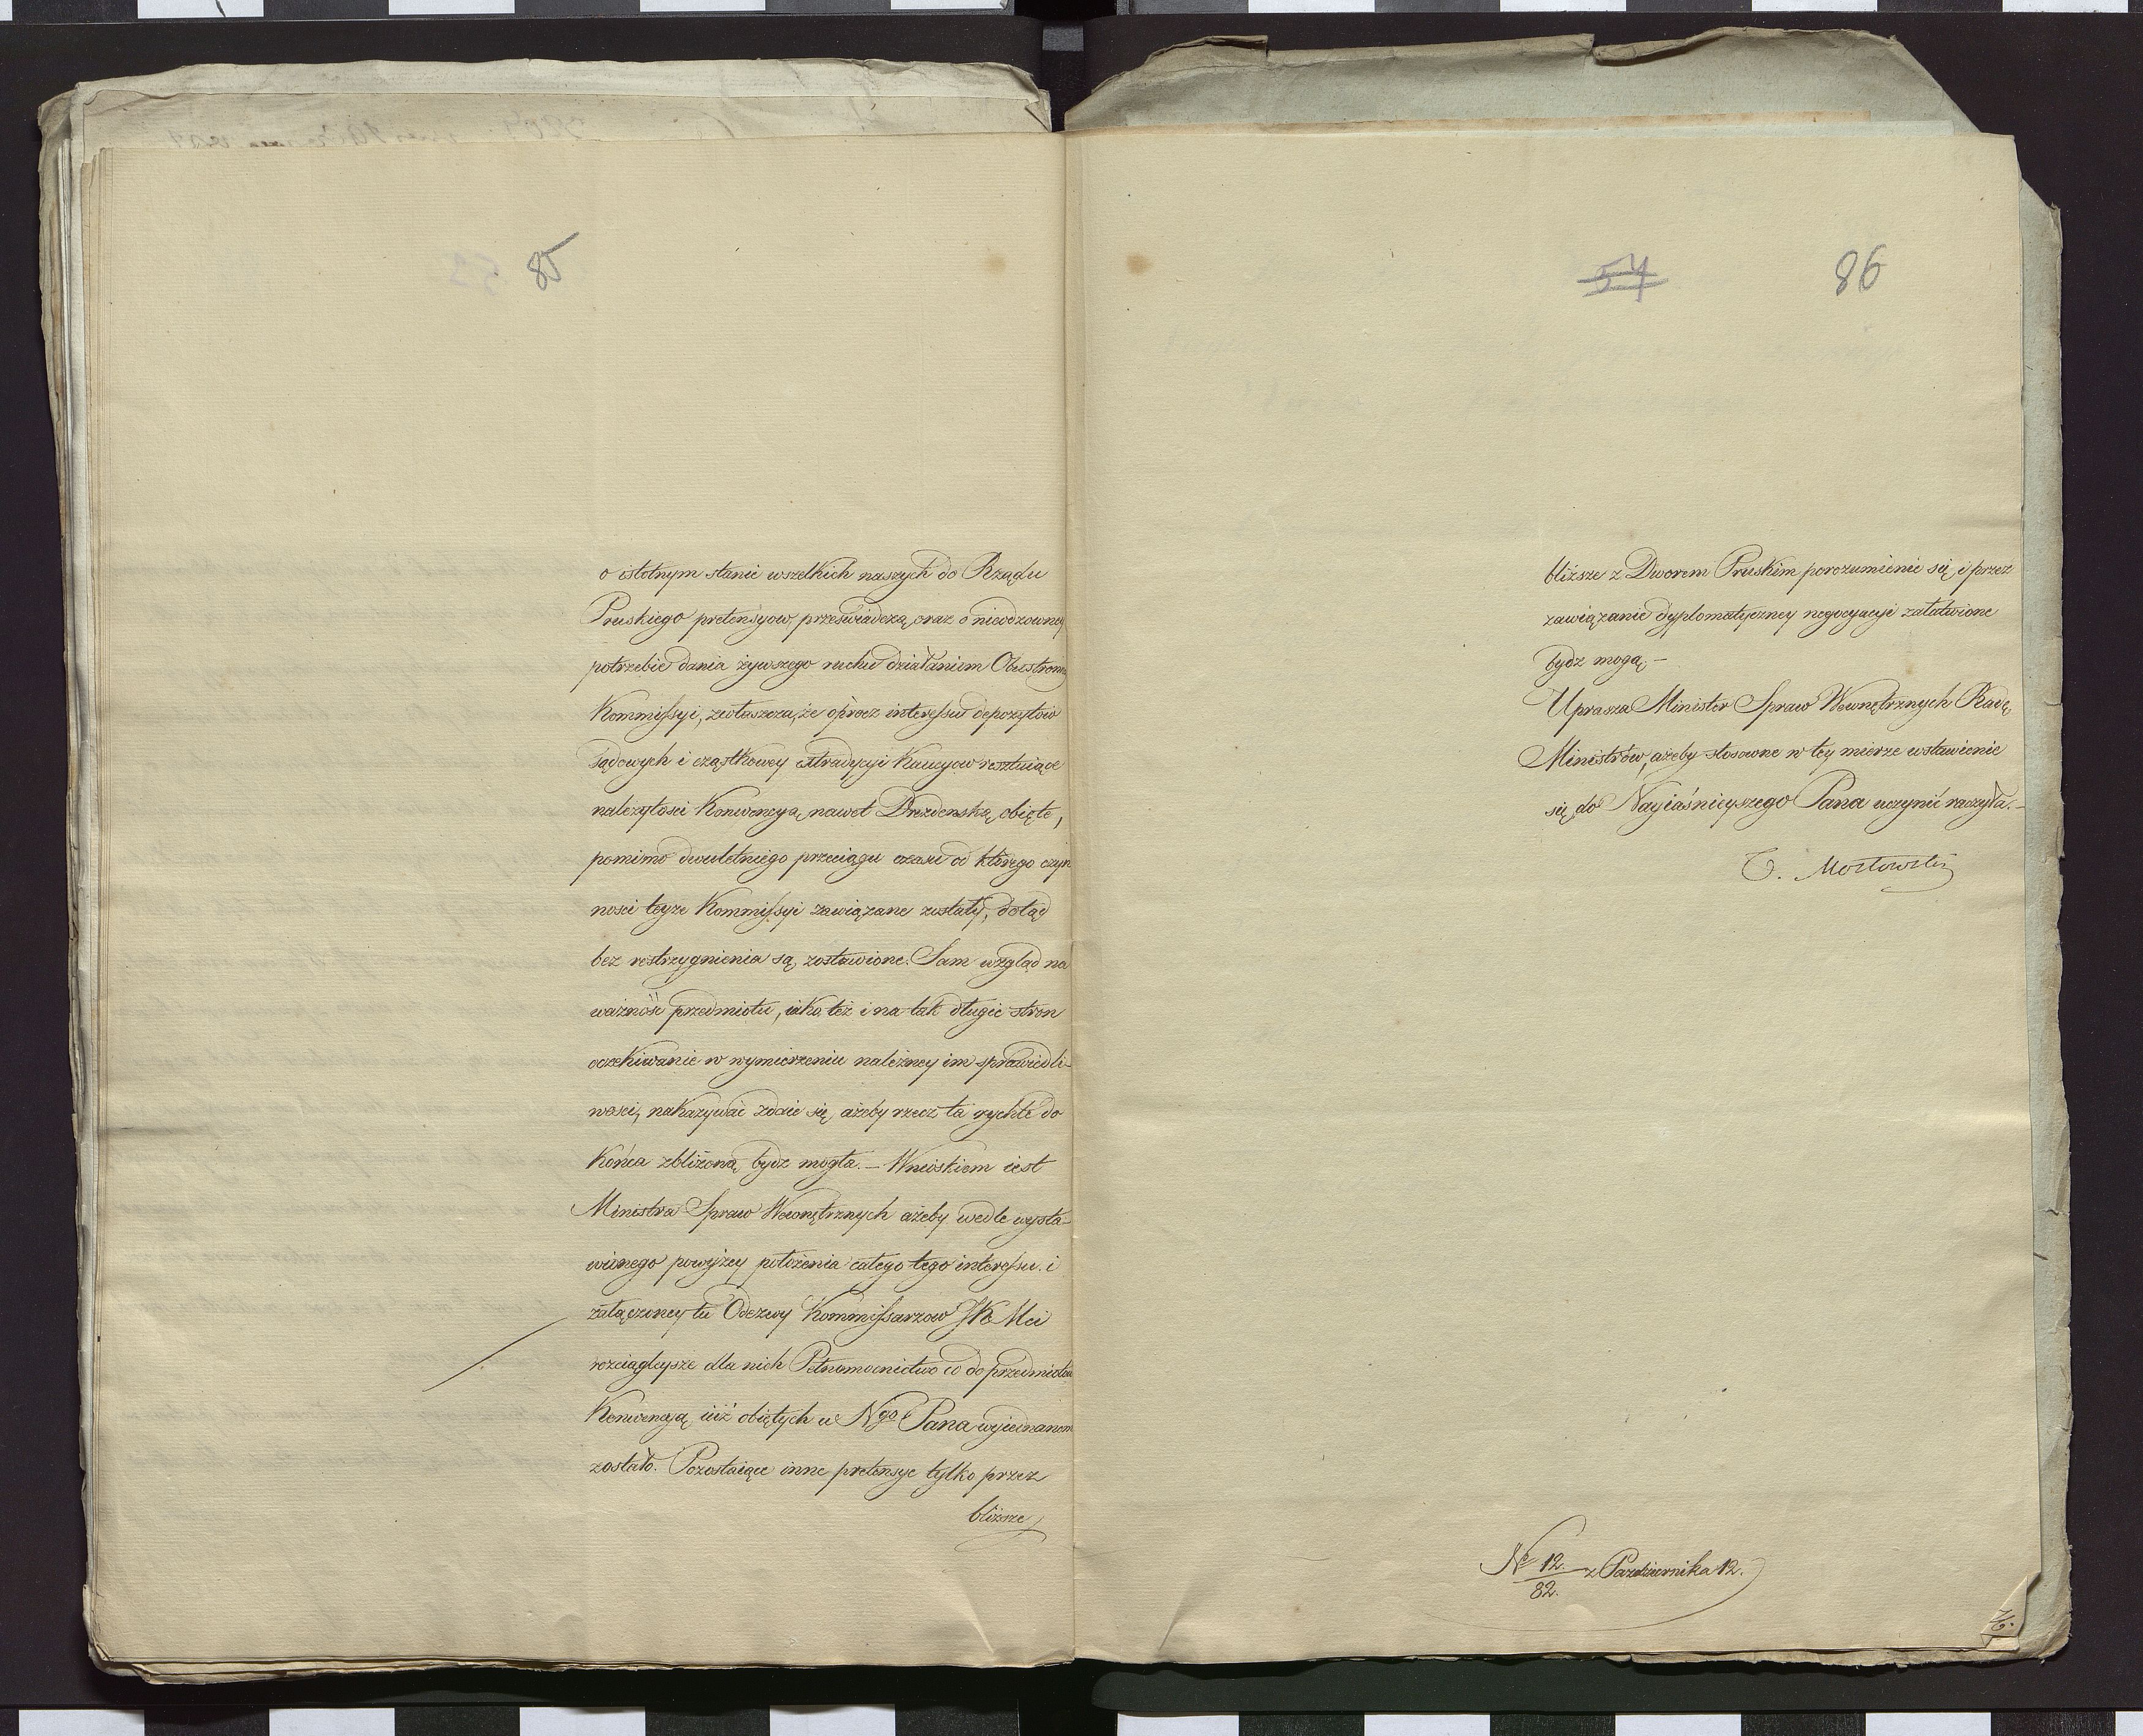 85
o istotnym stanie wszelkich naszych do Rządu
Pruskiego pretensyow, przeświadczą, oraz o nieodzowney
potrzebie dania żywszego ruchu działaniom Obustronn
Kommissyi, zwłaszcza, że oprocz interessu depozytow
sądowych i cząstkowey extradycyi Kaucyow resztuiące
należytosci Konwencyą nawet Drezdenską obięte,
pomimo dwuletniego przeciągu czasu od którego czyn
nosci teyże Kommissyi zawiązane zostały, dotąd
bez rostrzygnienia są zostawione. Sam wzgląd na
ważność przedmiotu, iako też i na tak długie stron
oczekiwanie w wymierzeniu należney im sprawiedli-
wosci, nakazywać zdaie się, ażeby rzecz ta rychło do
Końca zbliżoną bydz mogła. – Wnioskiem iest
Ministra Spraw Wewnętrznych ażeby wedle wysta-
wionego powyżey położenia całego tego interessu i
załączoney tu Odezwy Kommissarzow JK Mci
rozciągleysze dla nich Pełnomocnictwo co do przedmiotów
Konwencyą iuż obiętych u Ngo Pana wyiednanem
zostało. Pozostaiące inne pretensye tylko przez
bliższe
57
86
bliższe z Dworem Pruskim porozumienie się i przez
zawiązanie dyplomatyczney negocyacyi załatwione
bydz mogą. –
Uprasza Minister Spraw Wewnętrznych Radę
Ministrów, ażeby stosowne w tey mierze wstawienie
się do Nayiaśnieyszego Pana uczynić raczyła. –
T. Mostowski
No 12./82. z Pazdziernika 12.